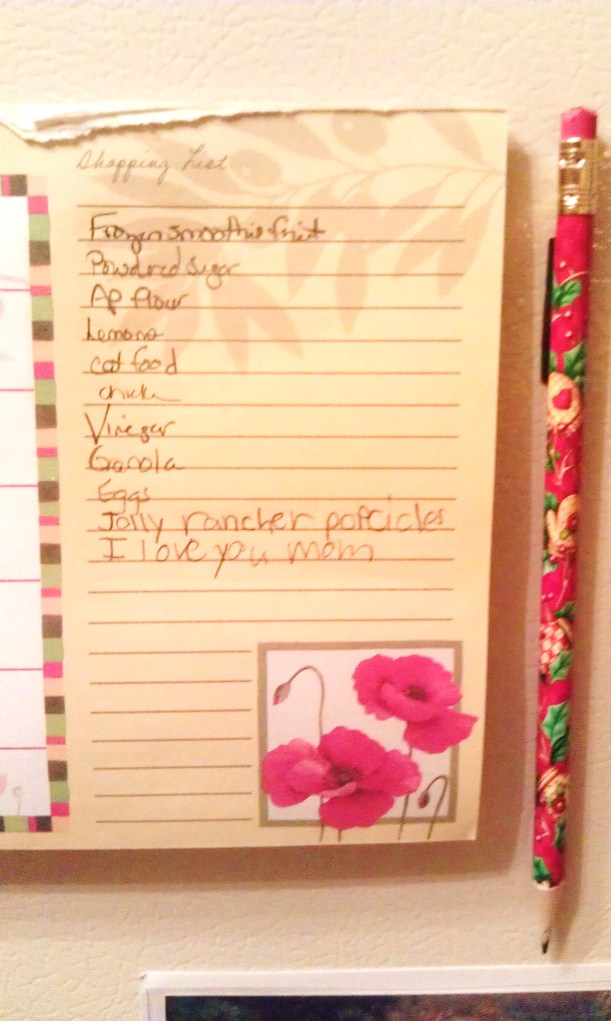 Shopping List
Frozen smoothie fruit
Powdered Sugar
AP flour
Lemons
cat food
Vinegar
Granola
Eggs
Jolly rancher popcicles
I love you mom